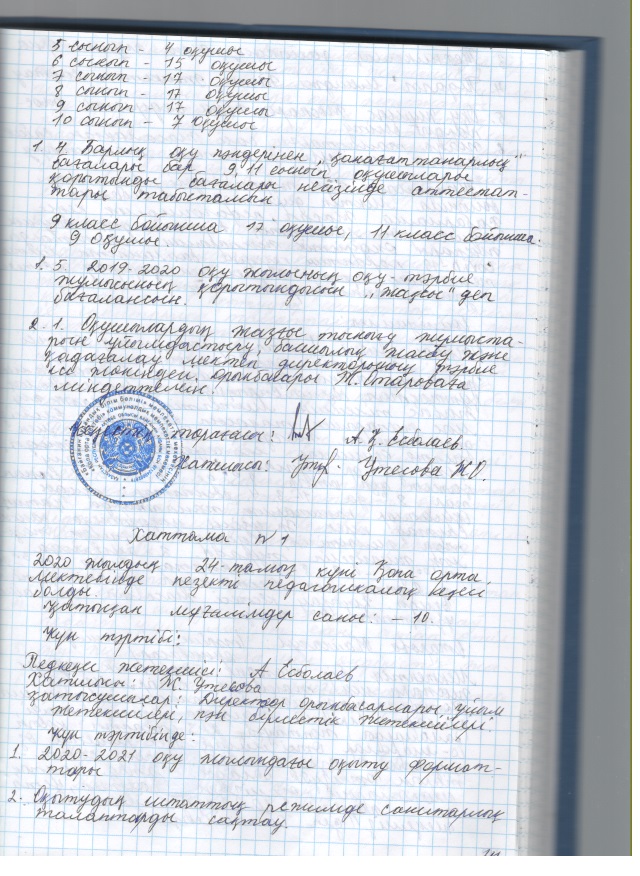 5 сынып - 4 оқушы
6 сынып - 15 оқушы
7 сынып - 17 оқушы
8 сынып - 17 оқушы
9 сынып - 17 оқушы
10 сынып - 7 оқушы
1. 4. Барлық оқу пәндерінен „қанағаттанарлық"
бағалары бар 9, 11 сынып оқушылары
қорытынды бағалары негізінде аттестат-
тары табысталсын
9 класс бойынша 17 оқушы, 11 класс бойынша
9 оқушы.
1. 5. 2019-2020 оқу жылының оқу-тәрбие
жұмысының қорытындысын „жақсы" деп
бағалансын.
2. 1. Оқушылардың жазғы тынығу жұмыста-
рын ұйымдастыру, басшылық жасау және
қадағалау мектеп директорының тәрбие
ісі жөніндегі орынбасары
міндеттелсін.
төрағасы: А. Есболаев
Хатшысы: Утесова Ж.
Хаттама №1
2020 жылдың 24-тамыз күні Қопа орта
мектебінде кезекті педагогикалық кеңес
болды.
Қатысқан мұғалімдер саны: – 10.
Күн тәртібі:
Педкеңес жетекшісі: А Есболаев
Хатшысы: Ж. Утесова
Қатысушылар: Директор орынбасарлары, ұйым
жетекшілері, пән бірлестік жетекшілері
Күн тәртібінде:
1. 2020-2021 оқу жылындағы оқыту формат-
тары
2. Оқытудың штаттық режимде санитарлық
талаптарды сақтау.